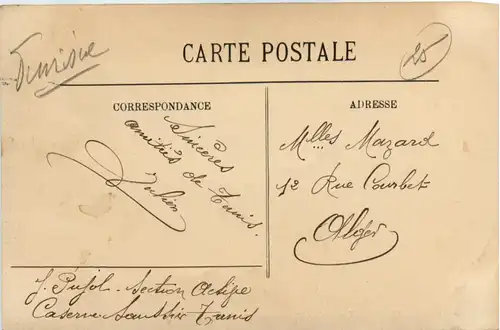 Tunisie
CARTE POSTALE
25
CORRESPONDANCE
Sincères
amitiés de Tunis.
Julien
ADRESSE
Mlles Mazard
12 Rue Courbet
Alger
J. Pujol. Section Active
Caserne Saussier Tunis